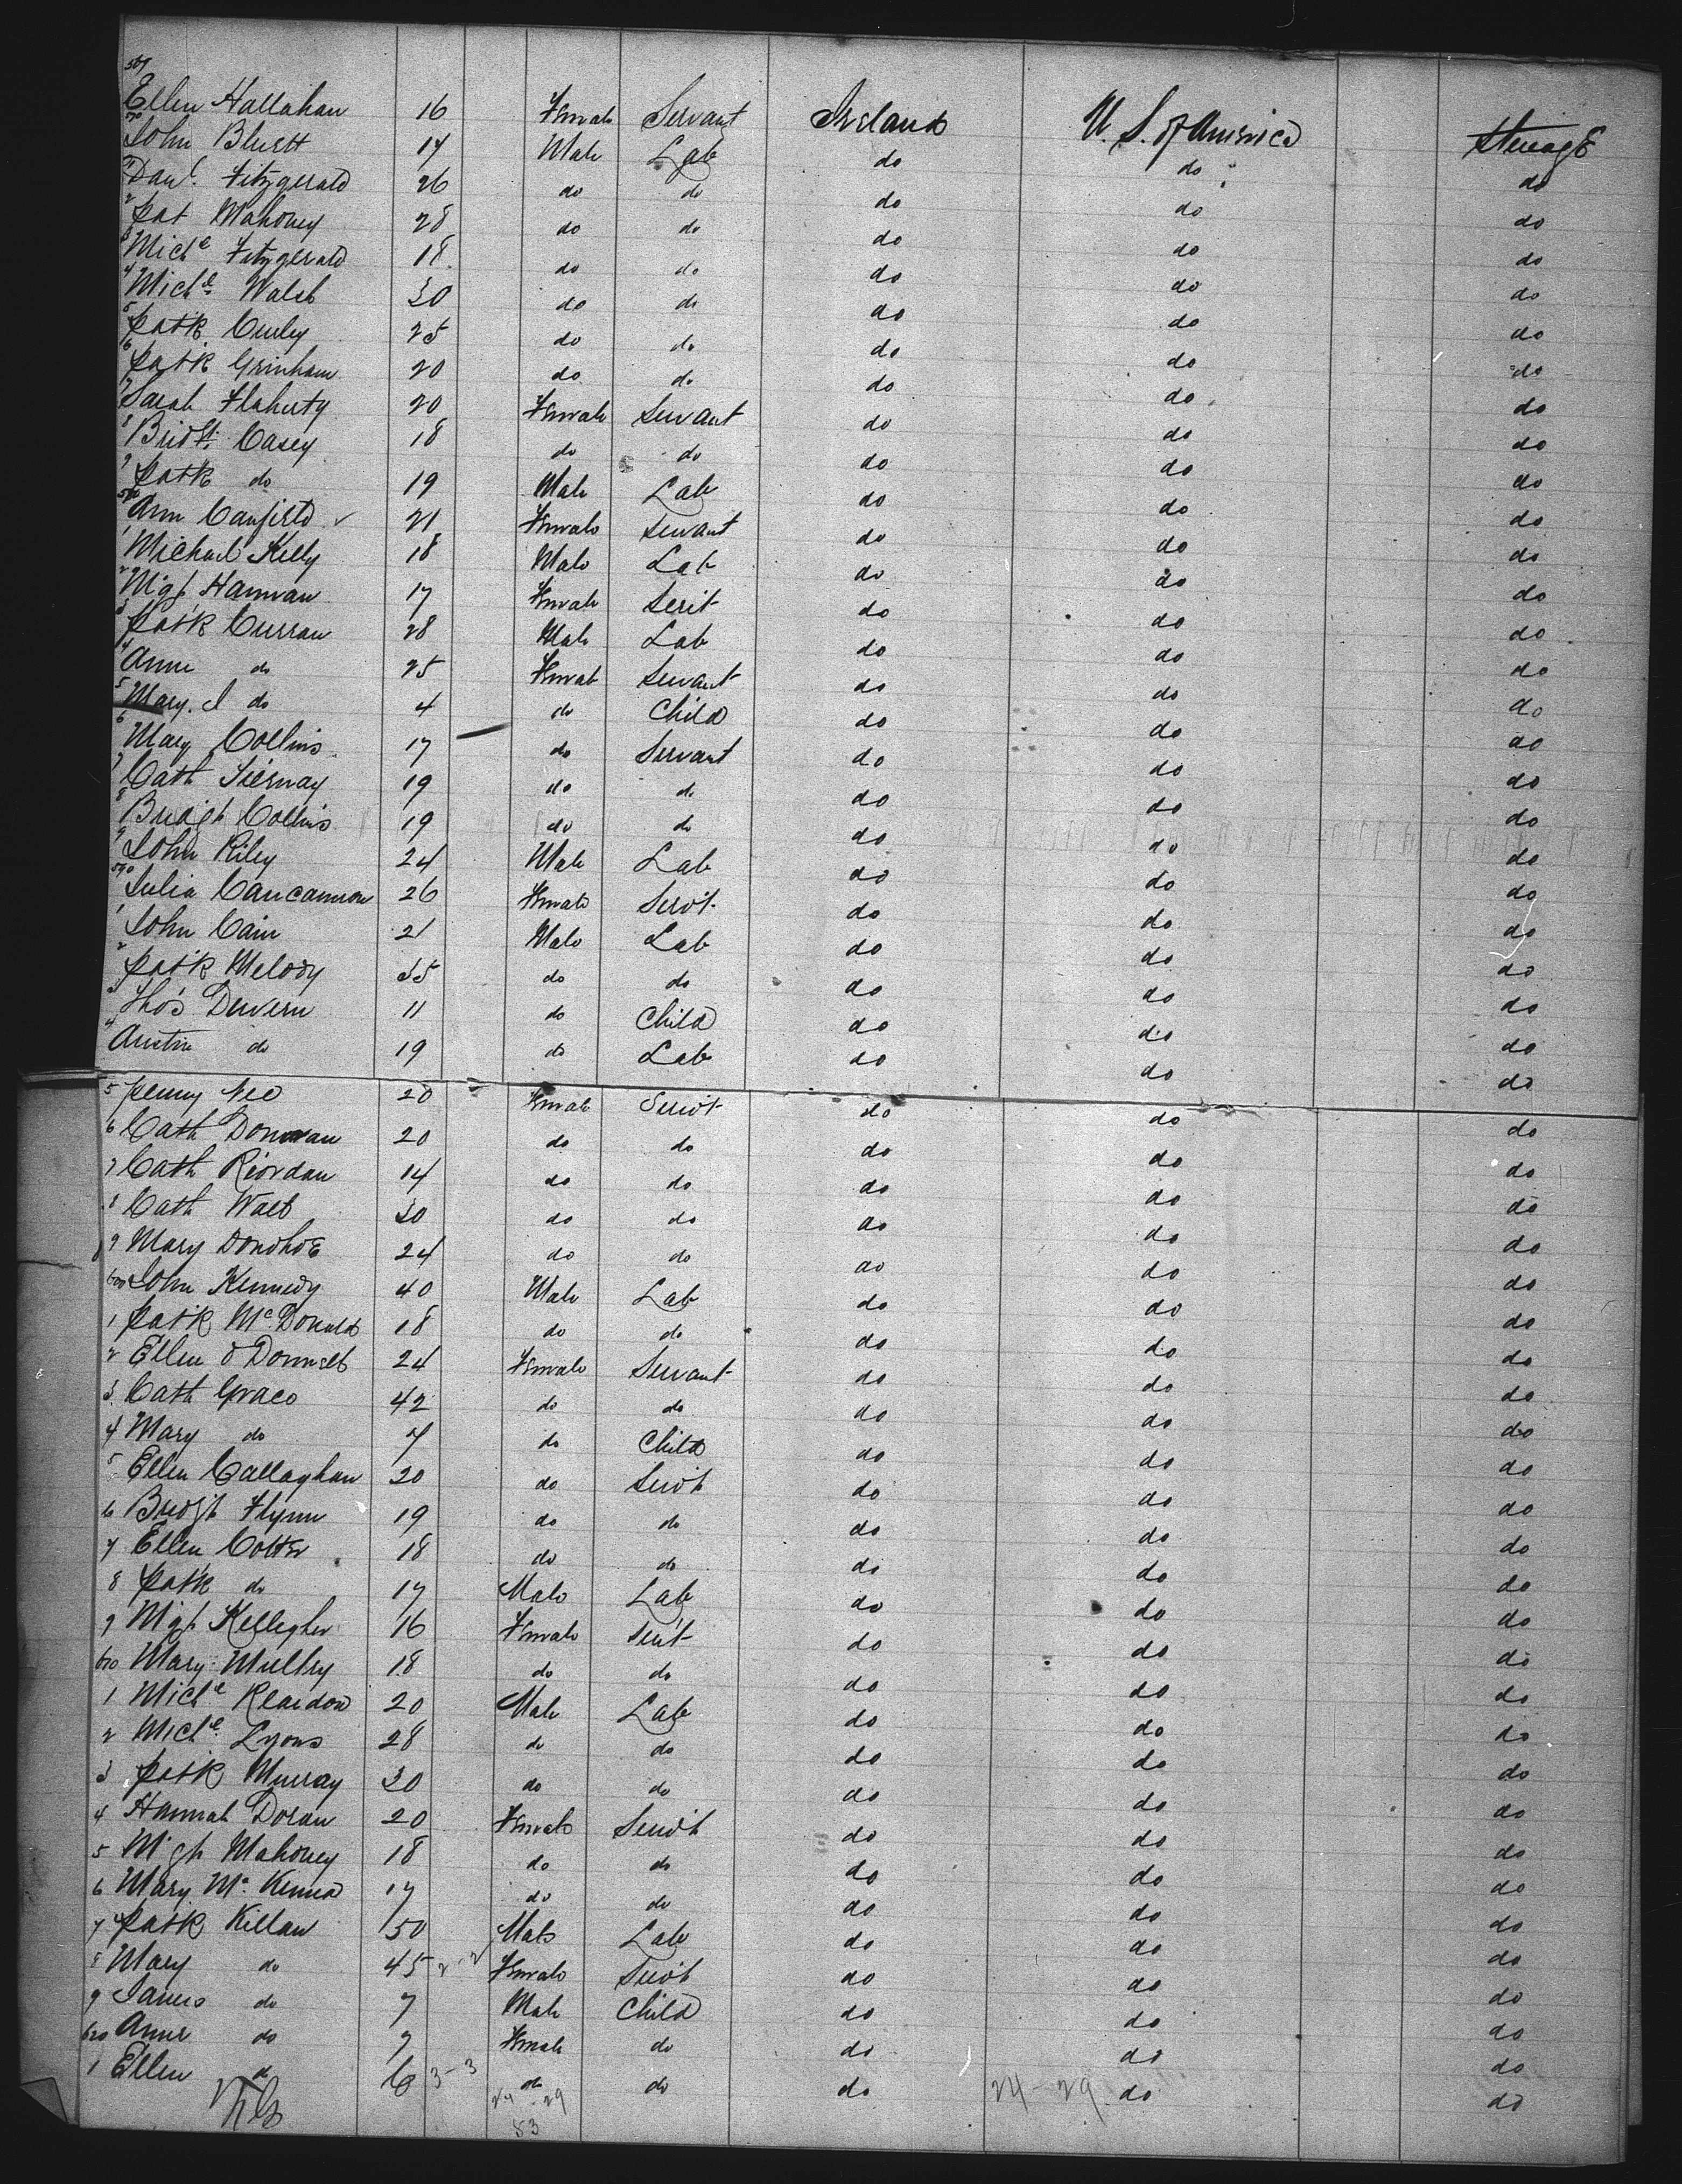 569 Ellen Hallahan 16 Female Servant Ireland U. S. of America Steerage
570 John Bluett 17 Male Lab do do do
1 Danl. Fitzgerald 26 do do do do do
2 Pat Mahoney 28 do do do do do
3 Michl Fitzgerald 18 do do do do do
4 Michl Walsh 30 do do do do do
5 Patk Curley 25 do do do do do
6 Patk Grinham 20 do do do do do
7 Sarah Flaherty 20 Female Servant do do do
8 Bridt. Casey 18 do do do do do
9 Patk do 19 Male Lab do do do
580 Ann Canfield 21 Female Servant do do do
1 Michael Kelly 18 Male Lab do do do
2 Mgt Hannan 17 Female Servt do do do
3 Patk Curran 28 Male Lab do do do
4 Anne do 25 Female Servant do do do
5 Mary. J do 4 do Child do do do
6 Mary Collins 17 do Servant do do do
7 Cath Tiernay 19 do do do do do
8 Bridgt Collins 19 do do do do do
9 John Riley 24 Male Lab do do do
590 Julia Cancannon 26 Female Servt do do do
1 John Cain 21 Male Lab do do do
2 Patk Melody 35 do do do do do
3 Thos Devern 11 do Child do do do
4 Austin do 19 do Lab do do do
5 Penny Nee 20 Female Servt do do do
6 Cath Donovan 20 do do do do do
7 Cath Riordan 14 do do do do do
8 Cath Walsh 30 do do do do do
9 Mary Donohoe 24 do do do do do
600 John Kennedy 40 Male Lab do do do
1 Patk McDonald 18 do do do do do
2 Ellen O Donnell 24 Female Servant do do do
3 Cath Grace 42 do do do do do
4 Mary do 7 do Child do do do
5 Ellen Callaghan 20 do Servt do do do
6 Bridgt Flynn 19 do do do do do
7 Ellen Cotter 18 do do do do do
8 Patk do 17 Male Lab do do do
9 Mgt Kellegher 16 Female Servt do do do
610 Mary Mullry 18 do do do do do
1 Michl Reardon 20 Male Lab do do do
2 Michl Lyons 28 do do do do do
3 Patk Murray 30 do do do do do
4 Hannah Doran 20 Female Servt do do do
5 Mgt Mahoney 18 do do do do do
6 Mary Mc Kenna 17 do do do do do
7 Patk Killan 50 Male Lab do do do
8 Mary do 45 2-2 Female Servt do do do
9 James do 7 Male Child do do do
620 Anne do 7 Female do do do do
1 Ellen do 6 3-3 do do do 24-29 do do
24 29
83